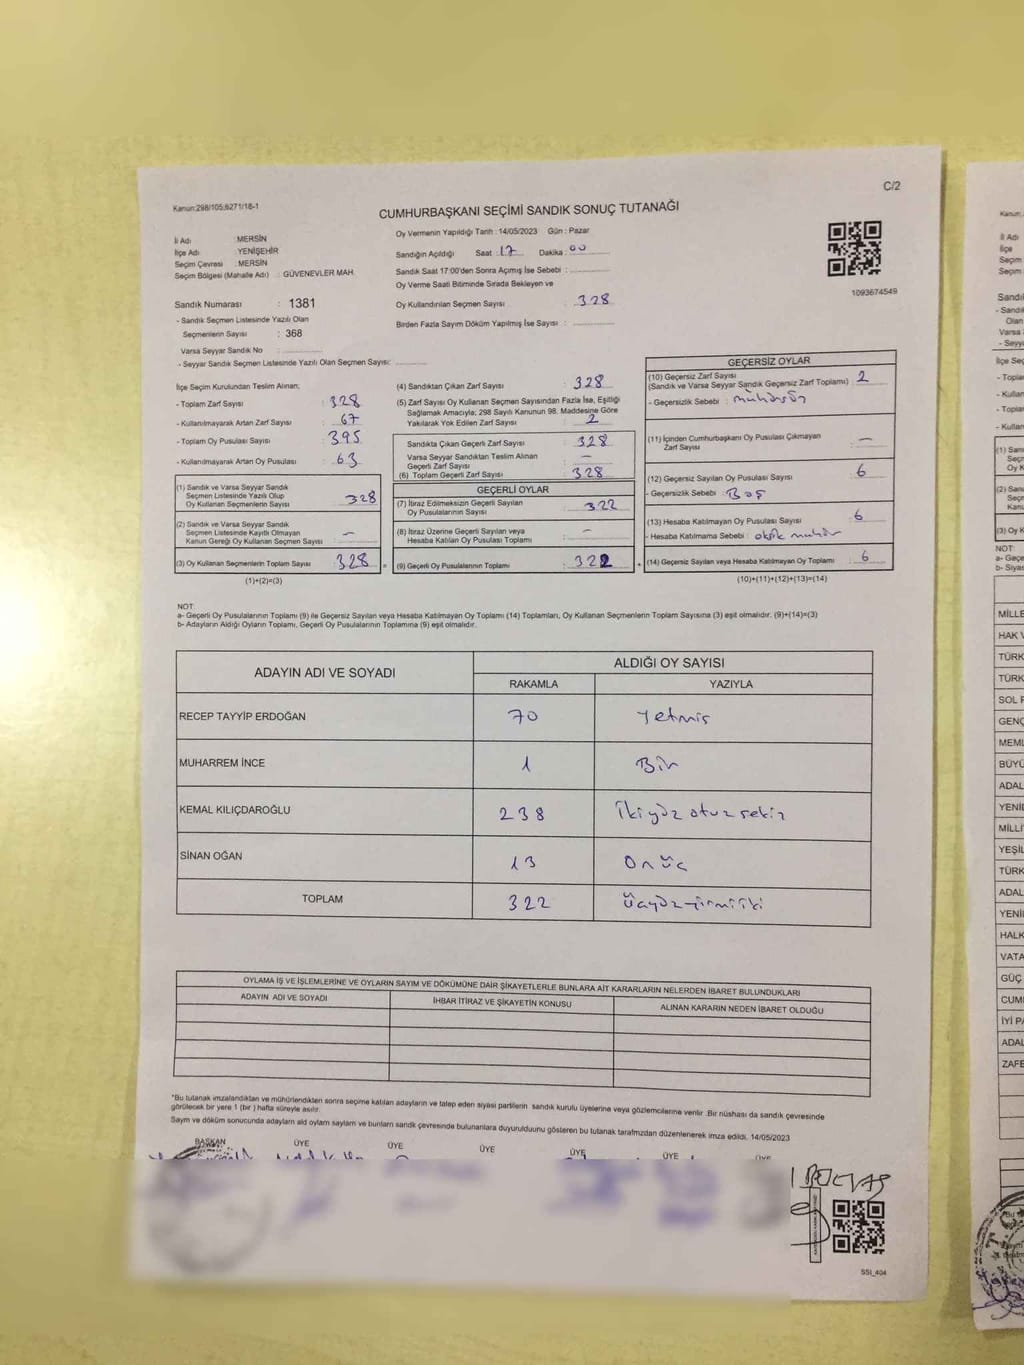 C/2
Kanun:298/105;6271/18-1
CUMHURBAŞKANI SEÇİMİ SANDIK SONUÇ TUTANAĞI
İl Adı : MERSİN
İlçe Adı : YENİŞEHİR
Seçim Çevresi : MERSİN
Seçim Bölgesi (Mahalle Adı) : GÜVENEVLER MAH.
Sandık Numarası : 1381
- Sandık Seçmen Listesinde Yazılı Olan
Seçmenlerin Sayısı : 368
Varsa Seyyar Sandık No :
- Seyyar Sandık Seçmen Listesinde Yazılı Olan Seçmen Sayısı:
Oy Vermenin Yapıldığı Tarih : 14/05/2023 Gün : Pazar
Sandığın Açıldığı Saat 17 Dakika : 00
Sandık Saat 17:00'den Sonra Açımış İse Sebebi :
Oy Verme Saati Bitiminde Sırada Bekleyen ve
Oy Kullandırılan Seçmen Sayısı : 328
Birden Fazla Sayım Döküm Yapılmış İse Sayısı :
1093674549
İlçe Seçim Kurulundan Teslim Alınan;
- Toplam Zarf Sayısı : 328
- Kullanılmayarak Artan Zarf Sayısı : 67
- Toplam Oy Pusulası Sayısı : 395
- Kullanılmayarak Artan Oy Pusulası : 63
(1) Sandık ve Varsa Seyyar Sandık
Seçmen Listesinde Yazılı Olup
Oy Kullanan Seçmenlerin Sayısı : 328
(2) Sandık ve Varsa Seyyar Sandık
Seçmen Listesinde Kayıtlı Olmayan
Kanun Gereği Oy Kullanan Seçmen Sayısı : —
(3) Oy Kullanan Seçmenlerin Toplam Sayısı : 328
(1)+(2)=(3)
(4) Sandıktan Çıkan Zarf Sayısı : 328
(5) Zarf Sayısı Oy Kullanan Seçmen Sayısından Fazla İse, Eşitliği
Sağlamak Amacıyla; 298 Sayılı Kanunun 98. Maddesine Göre
Yakılarak Yok Edilen Zarf Sayısı : 2
Sandıkta Çıkan Geçerli Zarf Sayısı : 328
Varsa Seyyar Sandıktan Teslim Alınan
Geçerli Zarf Sayısı : —
(6) Toplam Geçerli Zarf Sayısı : 328
GEÇERLİ OYLAR
(7) İtiraz Edilmeksizin Geçerli Sayılan
Oy Pusulalarının Sayısı : 322
(8) İtiraz Üzerine Geçerli Sayılan veya
Hesaba Katılan Oy Pusulası Toplamı : -
(9) Geçerli Oy Pusulalarının Toplamı : 322
GEÇERSİZ OYLAR
(10) Geçersiz Zarf Sayısı : 2
(Sandık ve Varsa Seyyar Sandık Geçersiz Zarf Toplamı)
- Geçersizlik Sebebi : mühürsüz
(11) İçinden Cumhurbaşkanı Oy Pusulası Çıkmayan
Zarf Sayısı : —
(12) Geçersiz Sayılan Oy Pusulası Sayısı : 6
- Geçersizlik Sebebi : Boş
(13) Hesaba Katılmayan Oy Pusulası Sayısı : 6
- Hesaba Katılmama Sebebi : eksik mühür
(14) Geçersiz Sayılan veya Hesaba Katılmayan Oy Toplamı : 6
(10)+(11)+(12)+(13)=(14)
NOT:
a- Geçerli Oy Pusulalarının Toplamı (9) ile Geçersiz Sayılan veya Hesaba Katılmayan Oy Toplamı (14) Toplamları, Oy Kullanan Seçmenlerin Toplam Sayısına (3) eşit olmalıdır. (9)+(14)=(3)
b- Adayların Aldığı Oyların Toplamı, Geçerli Oy Pusulalarının Toplamına (9) eşit olmalıdır.
ADAYIN ADI VE SOYADI ALDIĞI OY SAYISI
RAKAMLA YAZIYLA
RECEP TAYYİP ERDOĞAN 70 Yetmiş
MUHARREM İNCE 1 Bir
KEMAL KILIÇDAROĞLU 238 İkiyüz otuz sekiz
SİNAN OĞAN 13 Onüç
TOPLAM 322 Üçyüzyirmiiki
OYLAMA İŞ VE İŞLEMLERİNE VE OYLARIN SAYIM VE DÖKÜMÜNE DAİR ŞİKAYETLERLE BUNLARA AİT KARARLARIN NELERDEN İBARET BULUNDUKLARI
ADAYIN ADI VE SOYADI İHBAR İTİRAZ VE ŞİKAYETİN KONUSU ALINAN KARARIN NEDEN İBARET OLDUĞU
*Bu tutanak imzalandıktan ve mühürlendikten sonra seçime katılan adayların ve talep eden siyasi partilerin sandık kurulu üyelerine veya gözlemcilerine verilir .Bir nüshası da sandık çevresinde
görülecek bir yere 1 (bir ) hafta süreyle asılır.
Sayım ve döküm sonucunda adayların ald oyların sayısım ve bunların sandık çevresinde bulunanlara duyurulduunu gösteren bu tutanak tarafmızdan düzenlenerek imza edildi. 14/05/2023
BAŞKAN ÜYE ÜYE ÜYE ÜYE ÜYE ÜYE
SSI_404
Kanun:
İl Adı
İlçe
Seçim
Seçim
Sandı
- Sandı
Olan
Varsa
- Seyy
İlçe Seç
- Topla
- Kullan
- Toplar
- Kullan
(1) San
Seç
Oy K
(2) San
Seç
Kanu
(3) Oy K
NOT:
a- Geçe
b- Siyas
MİLLE
HAK V
TÜRK
TÜRK
SOL P
GENÇ
MEML
BÜYÜ
ADAL
YENİ
MİLLİ
YEŞİL
TÜRK
ADAL
YENİ
HALK
VATA
GÜÇ
CUM
İYİ P
ADAL
ZAFE